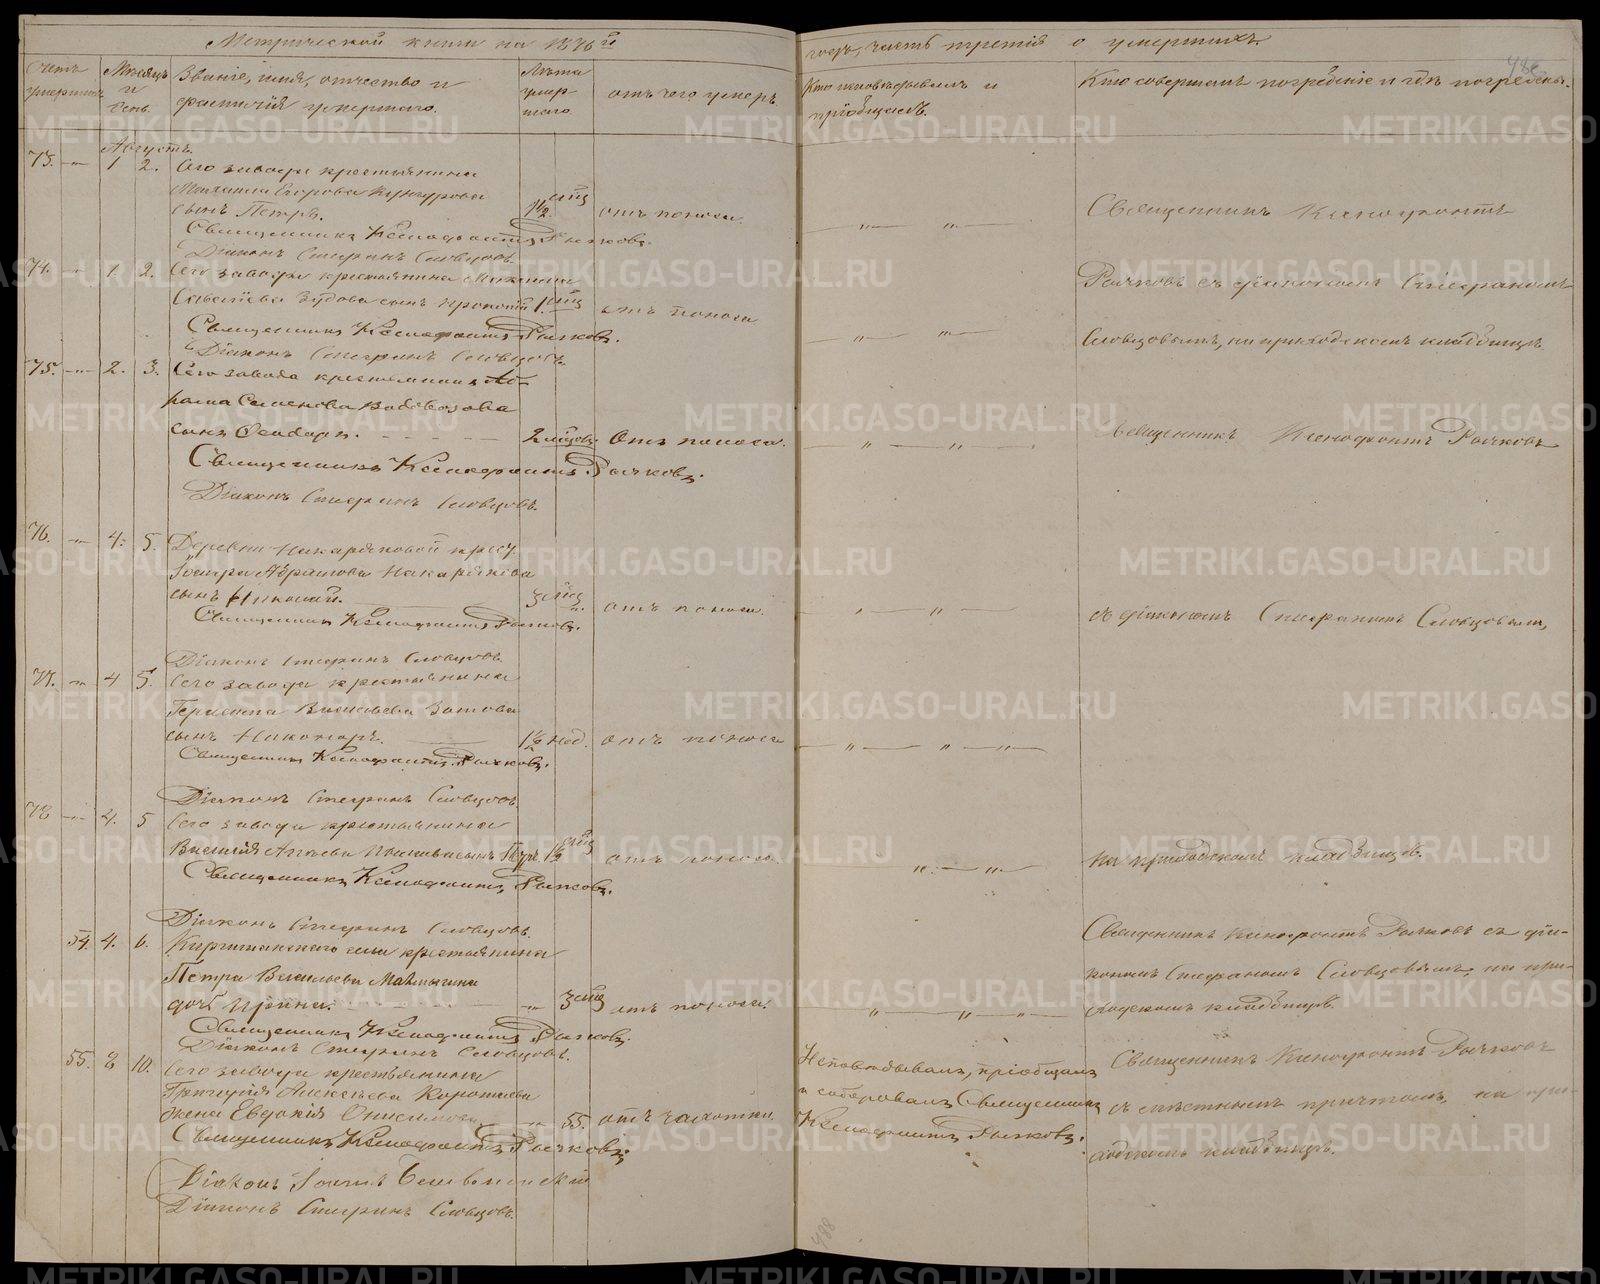 Метрической книги на 1876й
годъ, часть третія о умершихъ
488
Счетъ умершихъ
Мѣсяцъ и день.
Званіе, имя, отчество и фамилія умершаго.
Лѣта умершаго
отъ чего умеръ.
Кто исповѣдывалъ и пріобщалъ.
Кто совершалъ погребеніе и гдѣ погребены.
Августъ.
73. -"- 1 2. Сего завода крестьянина
Михаила Егорова Кунгурова
сынъ Петръ. 1 1/2 мѣц отъ поноса.
Священникъ Ксенофонтъ Рычковъ.
Діаконъ Стефанъ Словцовъ.
Священникъ Ксенофонтъ
74. -"- 1. 2. Сего завода крестьянина
Савватѣева сынъ Прокопій 1. мѣц отъ поноса
Священникъ Ксенофонтъ Рычковъ.
Діаконъ Стефанъ Словцовъ.
Рычковъ съ діакономъ Стефаномъ
Словцовымъ, на приходскомъ кладбищѣ.
75. -"- 2. 3. Сего завода крестьянина Аб-
рама Семенова Водовозова
сынъ Ѳеодоръ. 2 мѣсцовъ. Отъ поноса.
Священникъ Ксенофонтъ Рычковъ.
Діаконъ Стефанъ Словцовъ.
Священникъ Ксенофонтъ Рычковъ
76. -"- 4. 5. Деревни Накаряковой крест.
Абрамова Накарякова
сынъ Николай. 3 мѣц отъ поноса.
Священникъ Ксенофонтъ Рычковъ.
Діаконъ Стефанъ Словцовъ.
съ діакономъ Стефаномъ Словцовымъ,
77. -"- 4 5. Сего завода крестьянина
Васильева Зотова
сынъ Никаноръ. 1 1/2 нед. отъ поноса
Священникъ Ксенофонтъ Рычковъ.
Діаконъ Стефанъ Словцовъ.
78 -"- 4. 5 Сего завода крестьянина
Василія сынъ Петръ 1 1/2 мѣц отъ поноса.
Священникъ Ксенофонтъ Рычковъ.
Діаконъ Стефанъ Словцовъ.
на приходскомъ кладбищѣ.
54. 4. 6. Киргишанскаго села крестьянина
Петра Васильева
дочь Ирина. -"- 3 мѣц отъ поноса.
Священникъ Ксенофонтъ Рычковъ.
Діаконъ Стефанъ Словцовъ.
Священникъ Ксенофонтъ Рычковъ съ діа-
кономъ Стефаномъ Словцовымъ, на при-
ходскомъ кладбищѣ.
55. 8 10. Сего завода крестьянина
Григорія Алексѣева
жена Евдокія Онисимова -"- 55. отъ чахотки.
Священникъ Ксенофонтъ Рычковъ.
Діаконъ
Діаконъ Стефанъ Словцовъ.
Исповѣдывалъ, пріобщалъ
и соборовалъ Священникъ
Ксенофонтъ Рычковъ.
Священникъ Ксенофонтъ Рычковъ
съ мѣстнымъ причтомъ, на при-
ходскомъ кладбищѣ.
488
METRIKI.GASO-URAL.RU